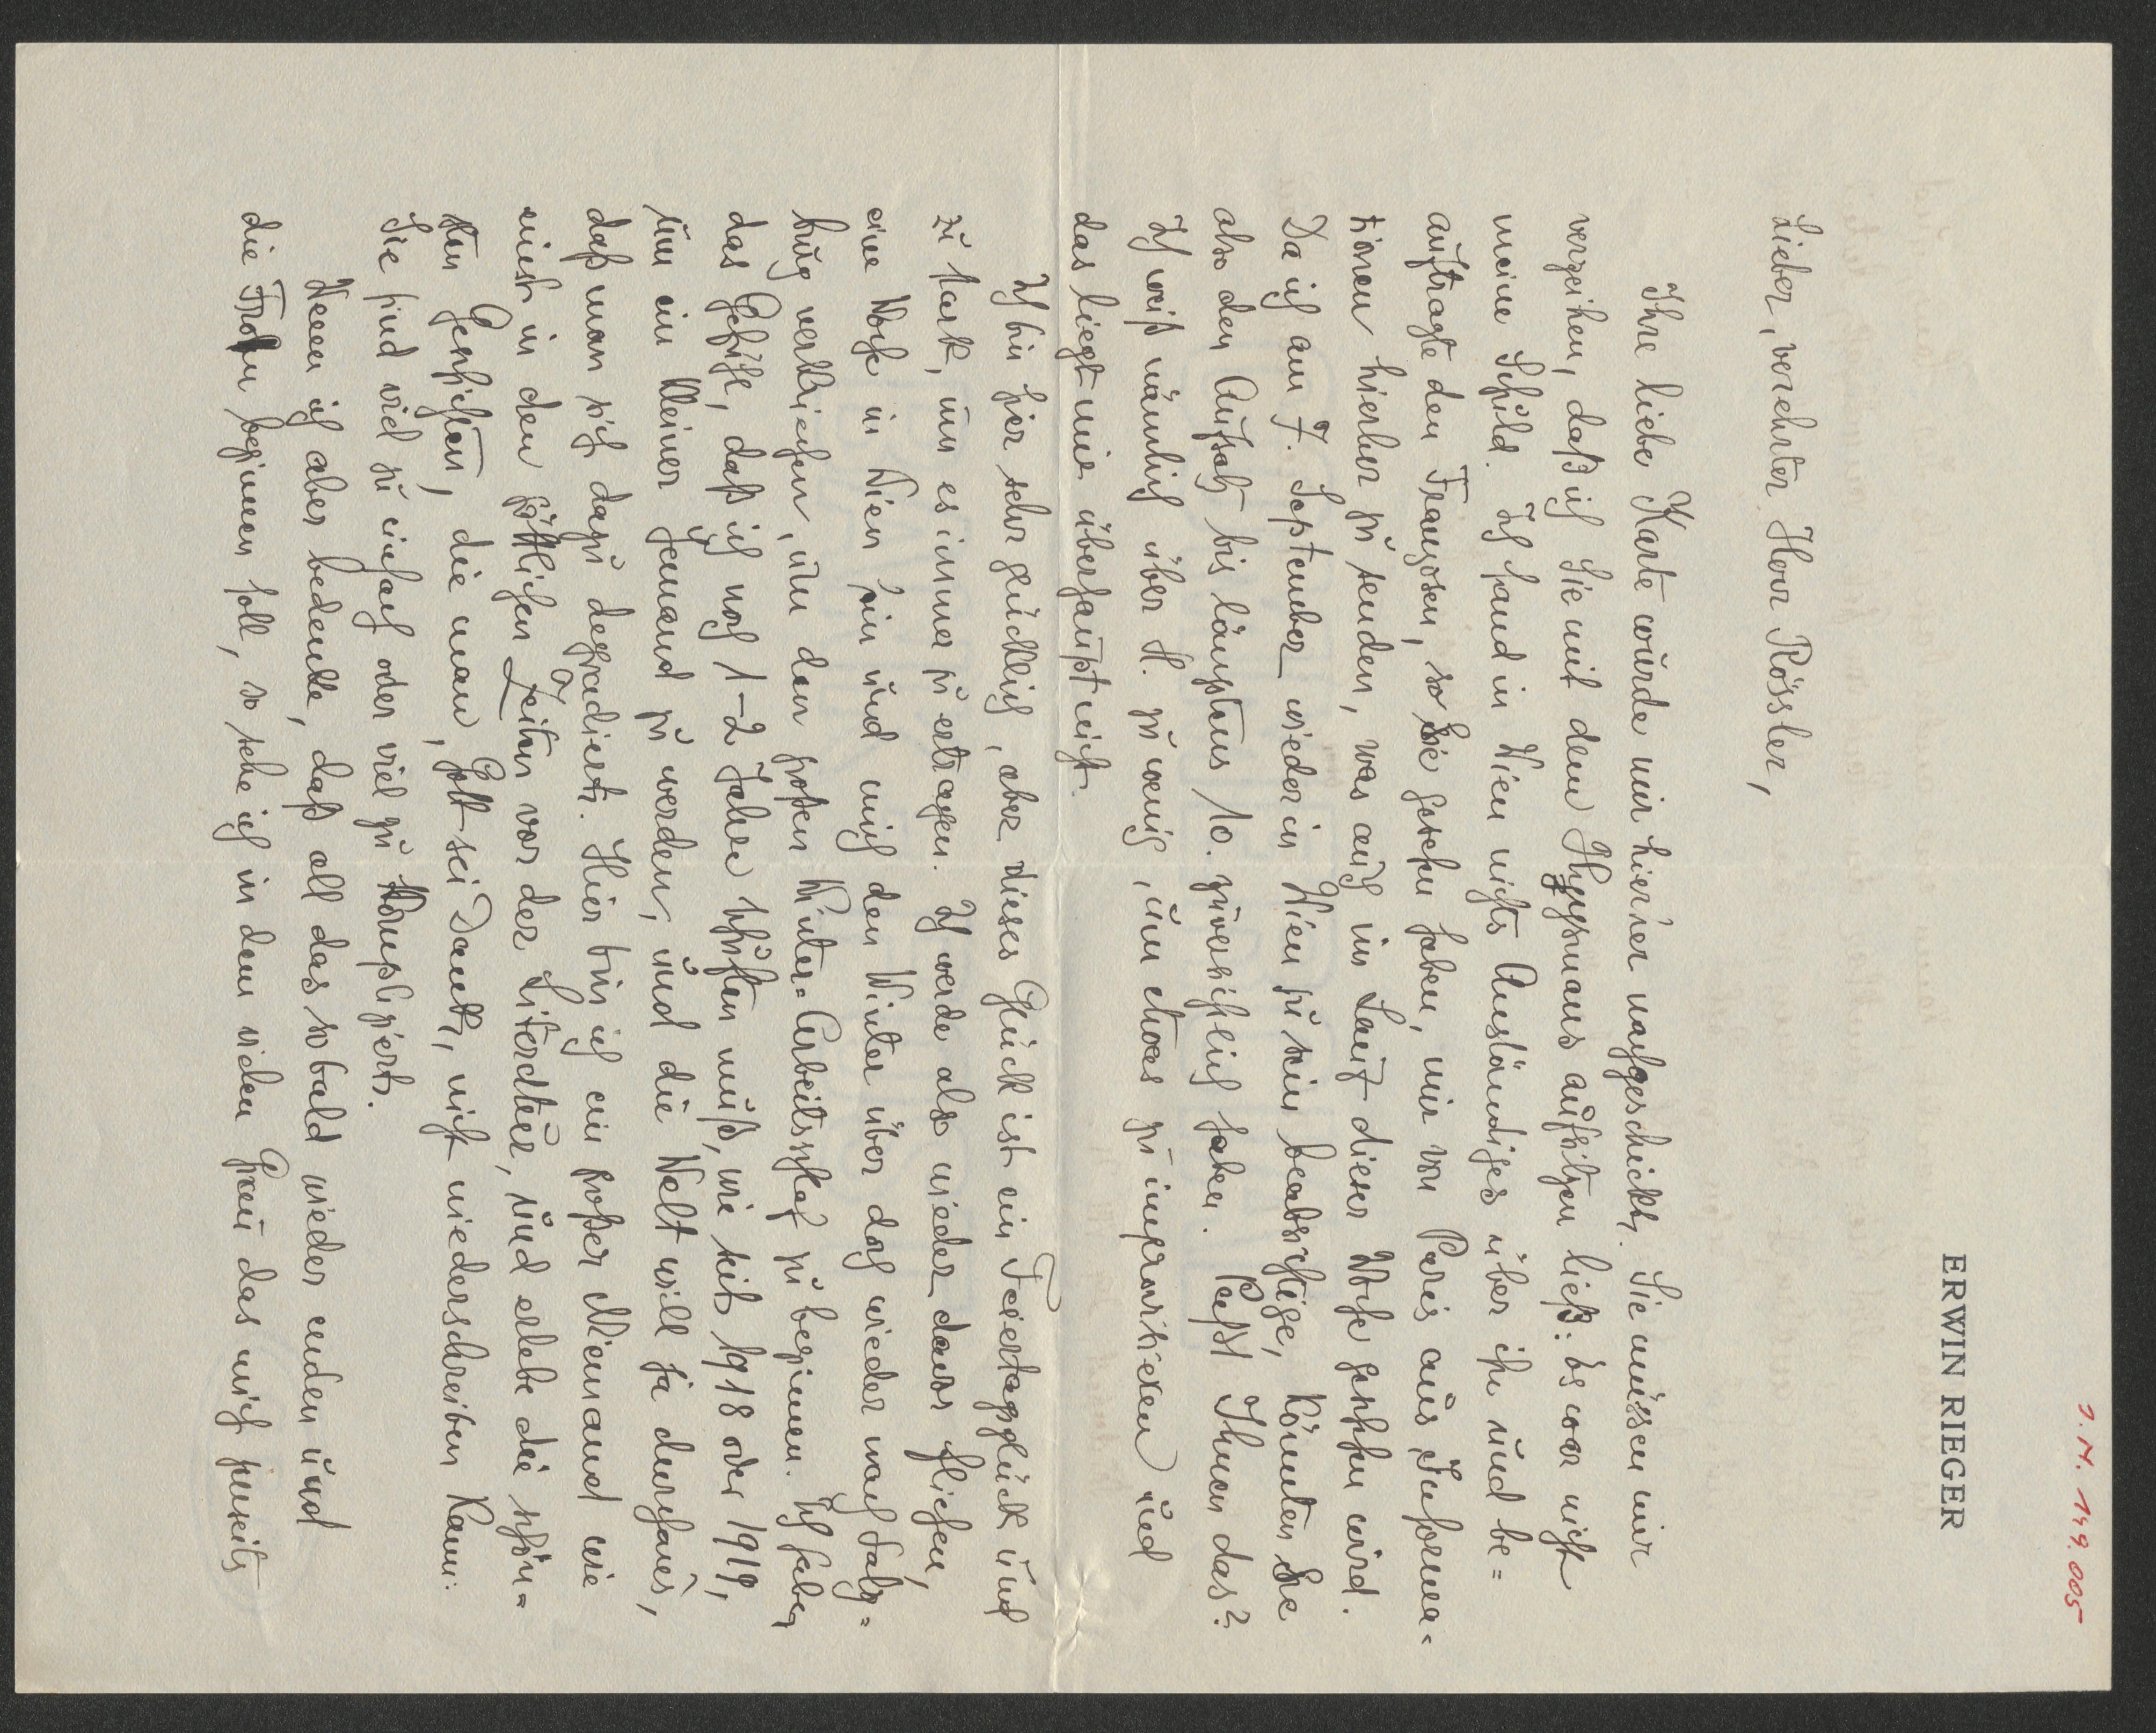 J.N. 149.005
ERWIN RIEGER
Lieber, verehrter Herr Rössler,
Ihre liebe Karte wurde mir hierher nachgeschickt. Sie müssen mir
verzeihen, daß ich Sie mit dem Huysmans aufsitzen ließ: es war nicht
meine Schuld. Ich fand in Wien nichts Anständiges über ihn und be=
auftragte den Franzosen, so Sie gesehen haben, mir von Paris aus Informa=
tionen hierher zu senden, was auch im Lauf dieser Woche geschehen wird.
Da ich am 7. September wieder in Wien zu sein beabsichtige, könnten Sie
also den Aufsatz bis längstens 10. zuversichtlich haben. Paßt Ihnen das?
Ich weiß nämlich über H. zu wenig, um etwas zu improvisieren und
das liegt mir überhaupt nicht.
Ich bin hier sehr glücklich, aber dieses Glück ist ein Feiertagsglück und
zu stark, um es immer zu ertragen. Ich werde also wieder davon fliehen,
eine Woche in Wien sein und mich den Winter über doch wieder nach Salz=
burg verkriechen, um den großen Winter=Arbeitsschlaf zu beginnen. Ich habe
das Gefühl, daß ich noch 1-2 Jahre schuften muß, wie seit 1918 oder 1919,
um ein kleiner Jemand zu werden, und die Welt will ja durchaus,
daß man sich dazu degradiert. Hier bin ich ein großer Niemand wie
einst in den göttlichen Zeiten vor der Literatur, und erlebe die schön=
sten Geschichten, die man, Gott sei Dank, nicht niederschreiben kann:
Sie sind viel zu einfach oder viel zu kompliziert.
Wenn ich aber bedenke, daß all das so bald wieder enden und
die Fron beginnen soll, so sehe ich in dem vielen Grau das mich jenseits